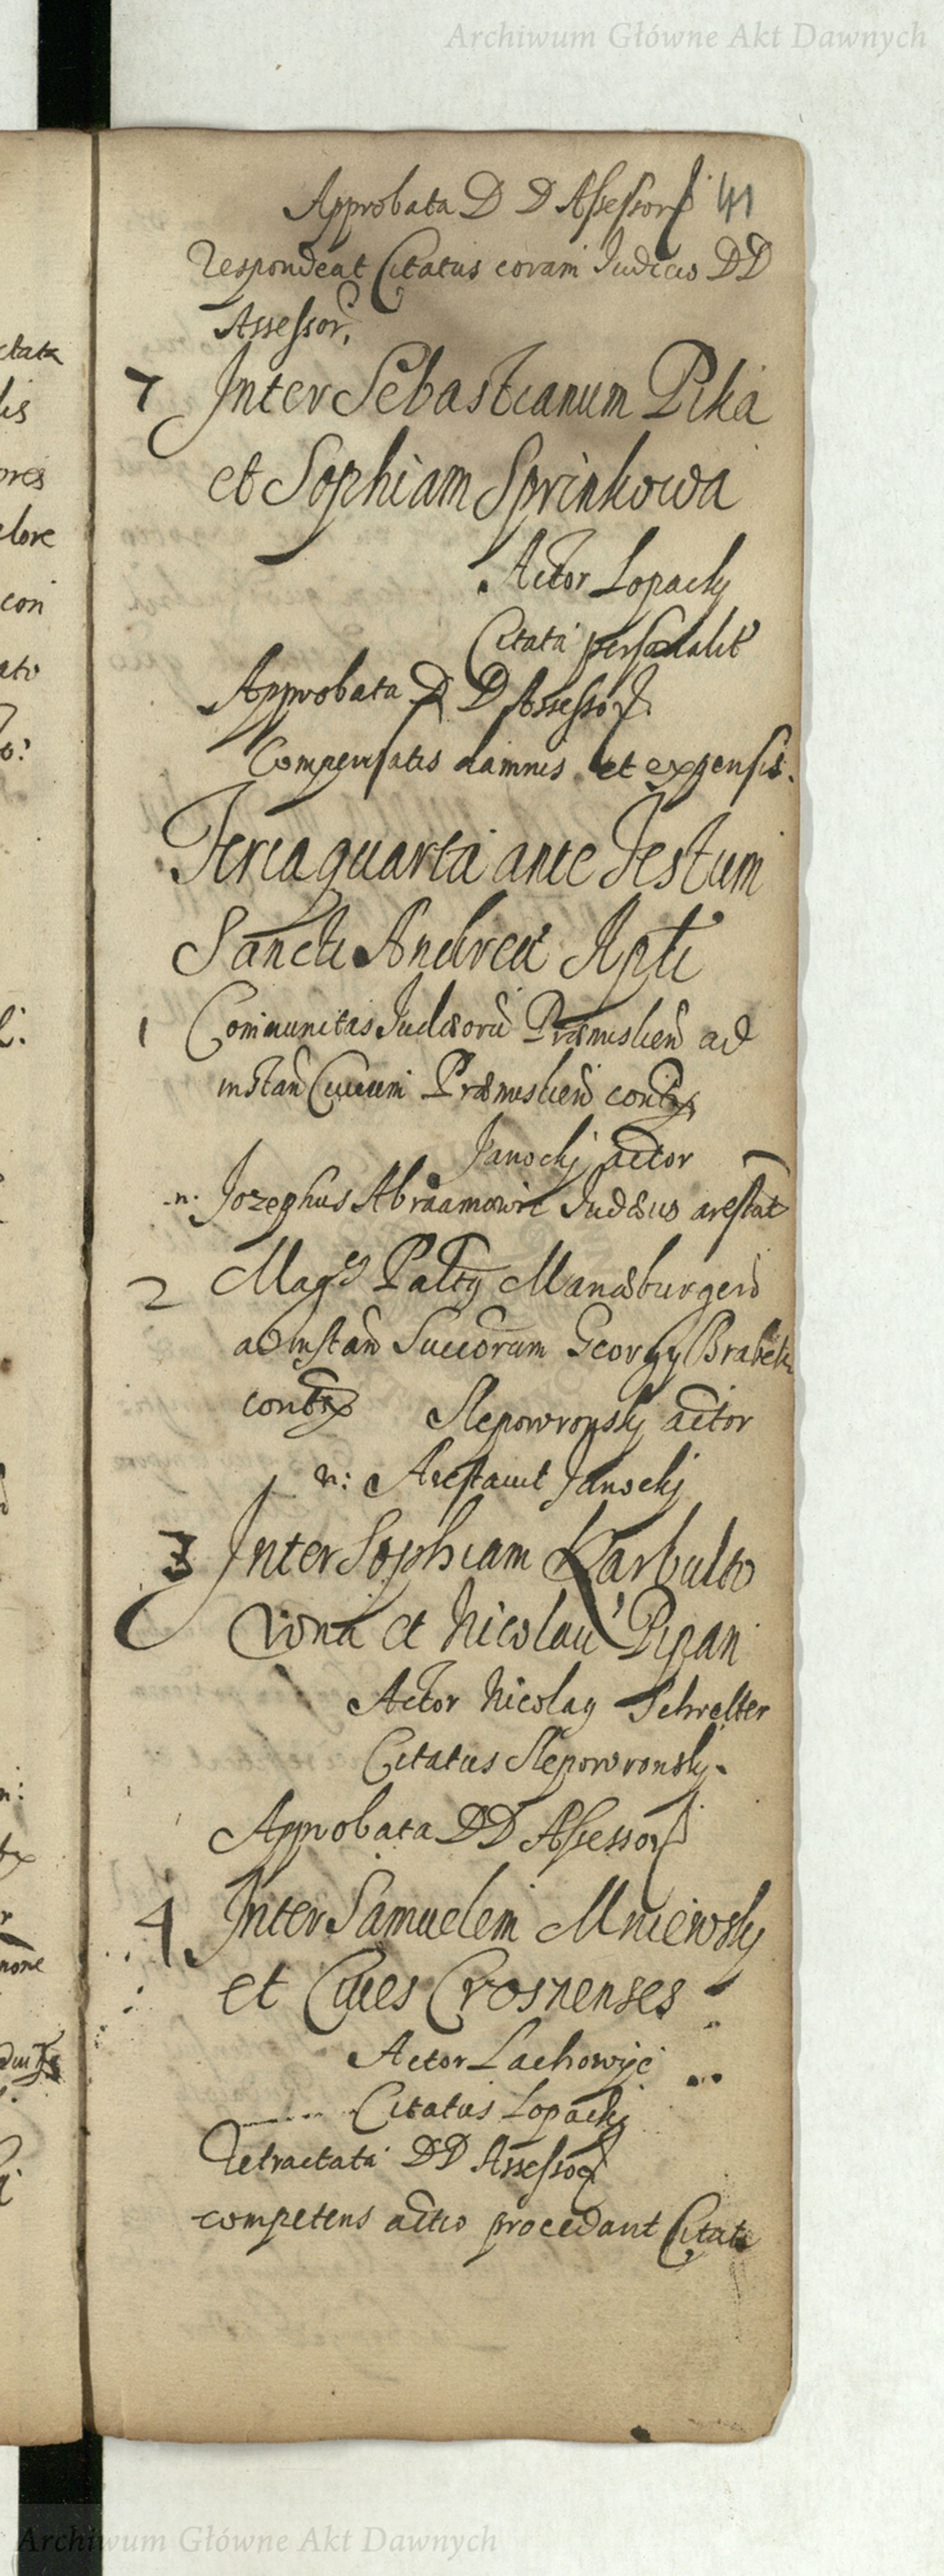 Archiwum Główne Akt Dawnych
Approbata D D Assessor 41
Respondeat Citatus coram Judicio DD
Assessor,
7 Inter Sebastianum Pika
et Sophiam Sprinkowa
Actor Lopacky
Citata personalit
Approbata D D Assessor
Compensatis damnis et expensis.
Feria quarta ante Festum
Sancti Andreae Apti
1 Communitas Judæorū Præmislien ad
instan Civium Præmislien
Janocky actor
n: Jozephus Abraamowic Judæus arestat
2 Mag
ad instan Succorum Georgy
Slepowronsky actor
n: Janocky
3 Inter Sophiam Karbulto
wona et Nicolau Pipan
Actor Nicolay Schrelter
Citatus Slepowronsky.
Approbata DD Assessor
4 Inter Samuelem Mniewsky
et Cives Crosnenses
Actor Lachowyc
Citatus Lopacky
Retractata DD Assessor
competens actio procedant Citati
ctata
lis
ores
lore
con
ato
o:
n:
r
none
Archiwum Główne Akt Dawnych